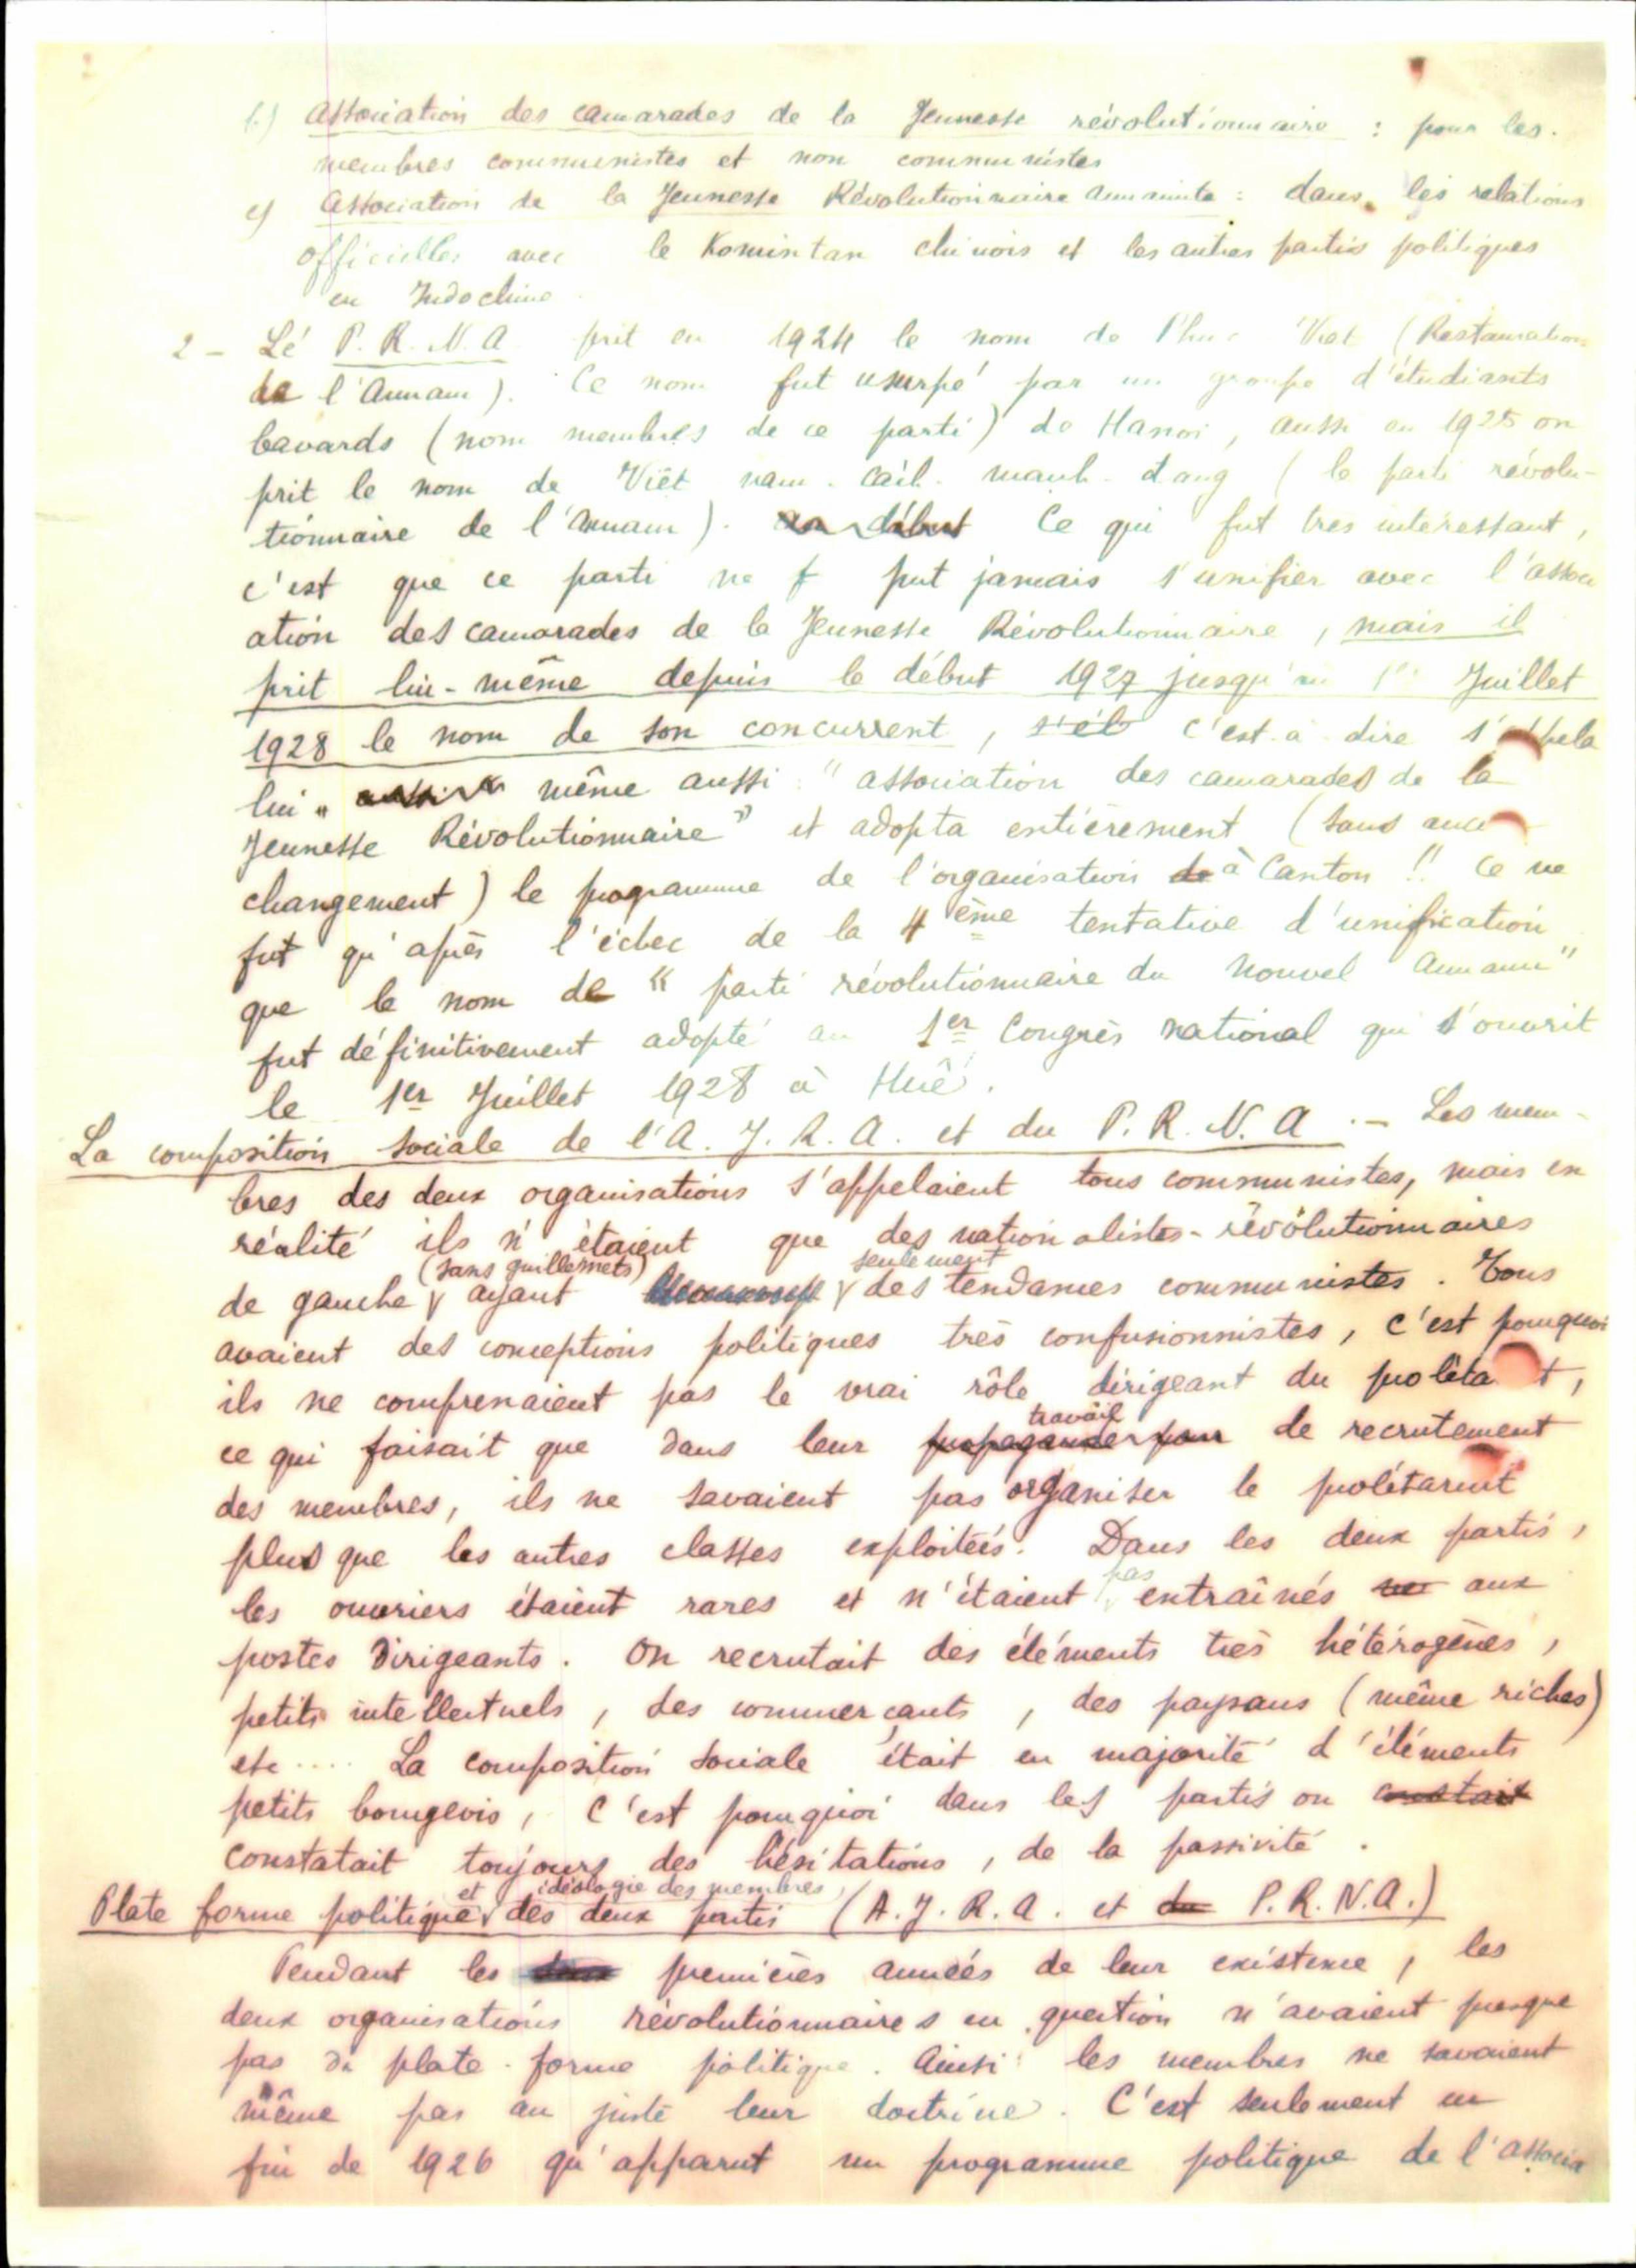 b) Association des camarades de la Jeunesse révolutionnaire : pour les
membres communistes et non communistes
c) Association de la Jeunesse Révolutionnaire Annamite : dans les relations
officielles avec le Komintan chinois et les autres partis politiques
en Indochine.
2 - Le P. R. N. A prit en 1924 le nom de Phuc Viet (Restauration
de l'Annam). Ce nom fut usurpé par un groupe d'étudiants
bavards (nom membres de ce parti) de Hanoi, aussi en 1925 on
prit le nom de Viêt nam. Cach. manh. dang (le parti révolu-
tionnaire de l'Annam). au début Ce qui fut très intéressant,
c'est que ce parti ne f put jamais s'unifier avec l'associ
ation des camarades de la Jeunesse Révolutionnaire, mais il
prit lui-même depuis le début 1927 jusqu'au 1er Juillet
1928 le nom de son concurrent, c'est-à-dire s'appela
lui " même aussi : "association des camarades de la
Jeunesse Révolutionnaire" et adopta entièrement (sans aucun
changement) le programme de l'organisation de à Canton !! Ce ne
fut qu'après l'échec de la 4ème tentative d'unification
que le nom de "parti révolutionnaire du nouvel Annam"
fut définitivement adopté au 1er Congrès national qui s'ouvrit
le 1er Juillet 1928 à Huê.
La composition sociale de l'A. J. R. A. et du P. R. N. A. - Les mem-
bres des deux organisations s'appelaient tous communistes, mais en
réalité ils n'étaient que des nationalistes-révolutionnaires
de gauche (sans guillemets) ayant seulement des tendances communistes. Tous
avaient des conceptions politiques très confusionnistes, c'est pourquoi
ils ne comprenaient pas le vrai rôle dirigeant du proléta t,
ce qui faisait que dans leur propagande pour travail de recrutement
des membres, ils ne savaient pas organiser le prolétariat
plus que les autres classes exploitées. Dans les deux partis,
les ouvriers étaient rares et n'étaient pas entraînés aux
postes dirigeants. On recrutait des éléments très hétérogènes,
petits intellectuels, des commerçants, des paysans (même riches)
etc .... La composition sociale était en majorité d'éléments
petits bourgeois, C'est pourquoi dans les partis on constait
constatait toujours des hésitations, de la passivité.
Plate forme politique et idéologie des membres, des deux partis (A. J. R. A. et du P. R. N. A.)
Pendant les deux premières années de leur existence, les
deux organisations révolutionnaires en question n'avaient presque
pas de plate-forme politique. Ainsi les membres ne savaient
même pas au juste leur doctrine. C'est seulement en
fin de 1926 qu'apparut un programme politique de l'associa